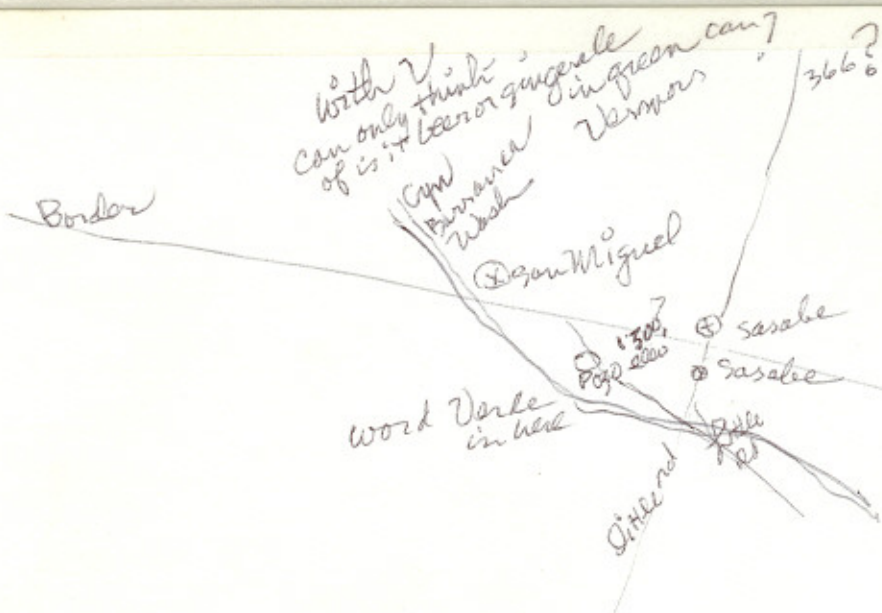 with V
can only think
of is it beer or gingerale
in green can?
Vernors
366?
Border
Cyn
Barranca
Wash
San Miguel
300?
Pozo
Sasabe
Sasabe
word Verde
in here
little rd